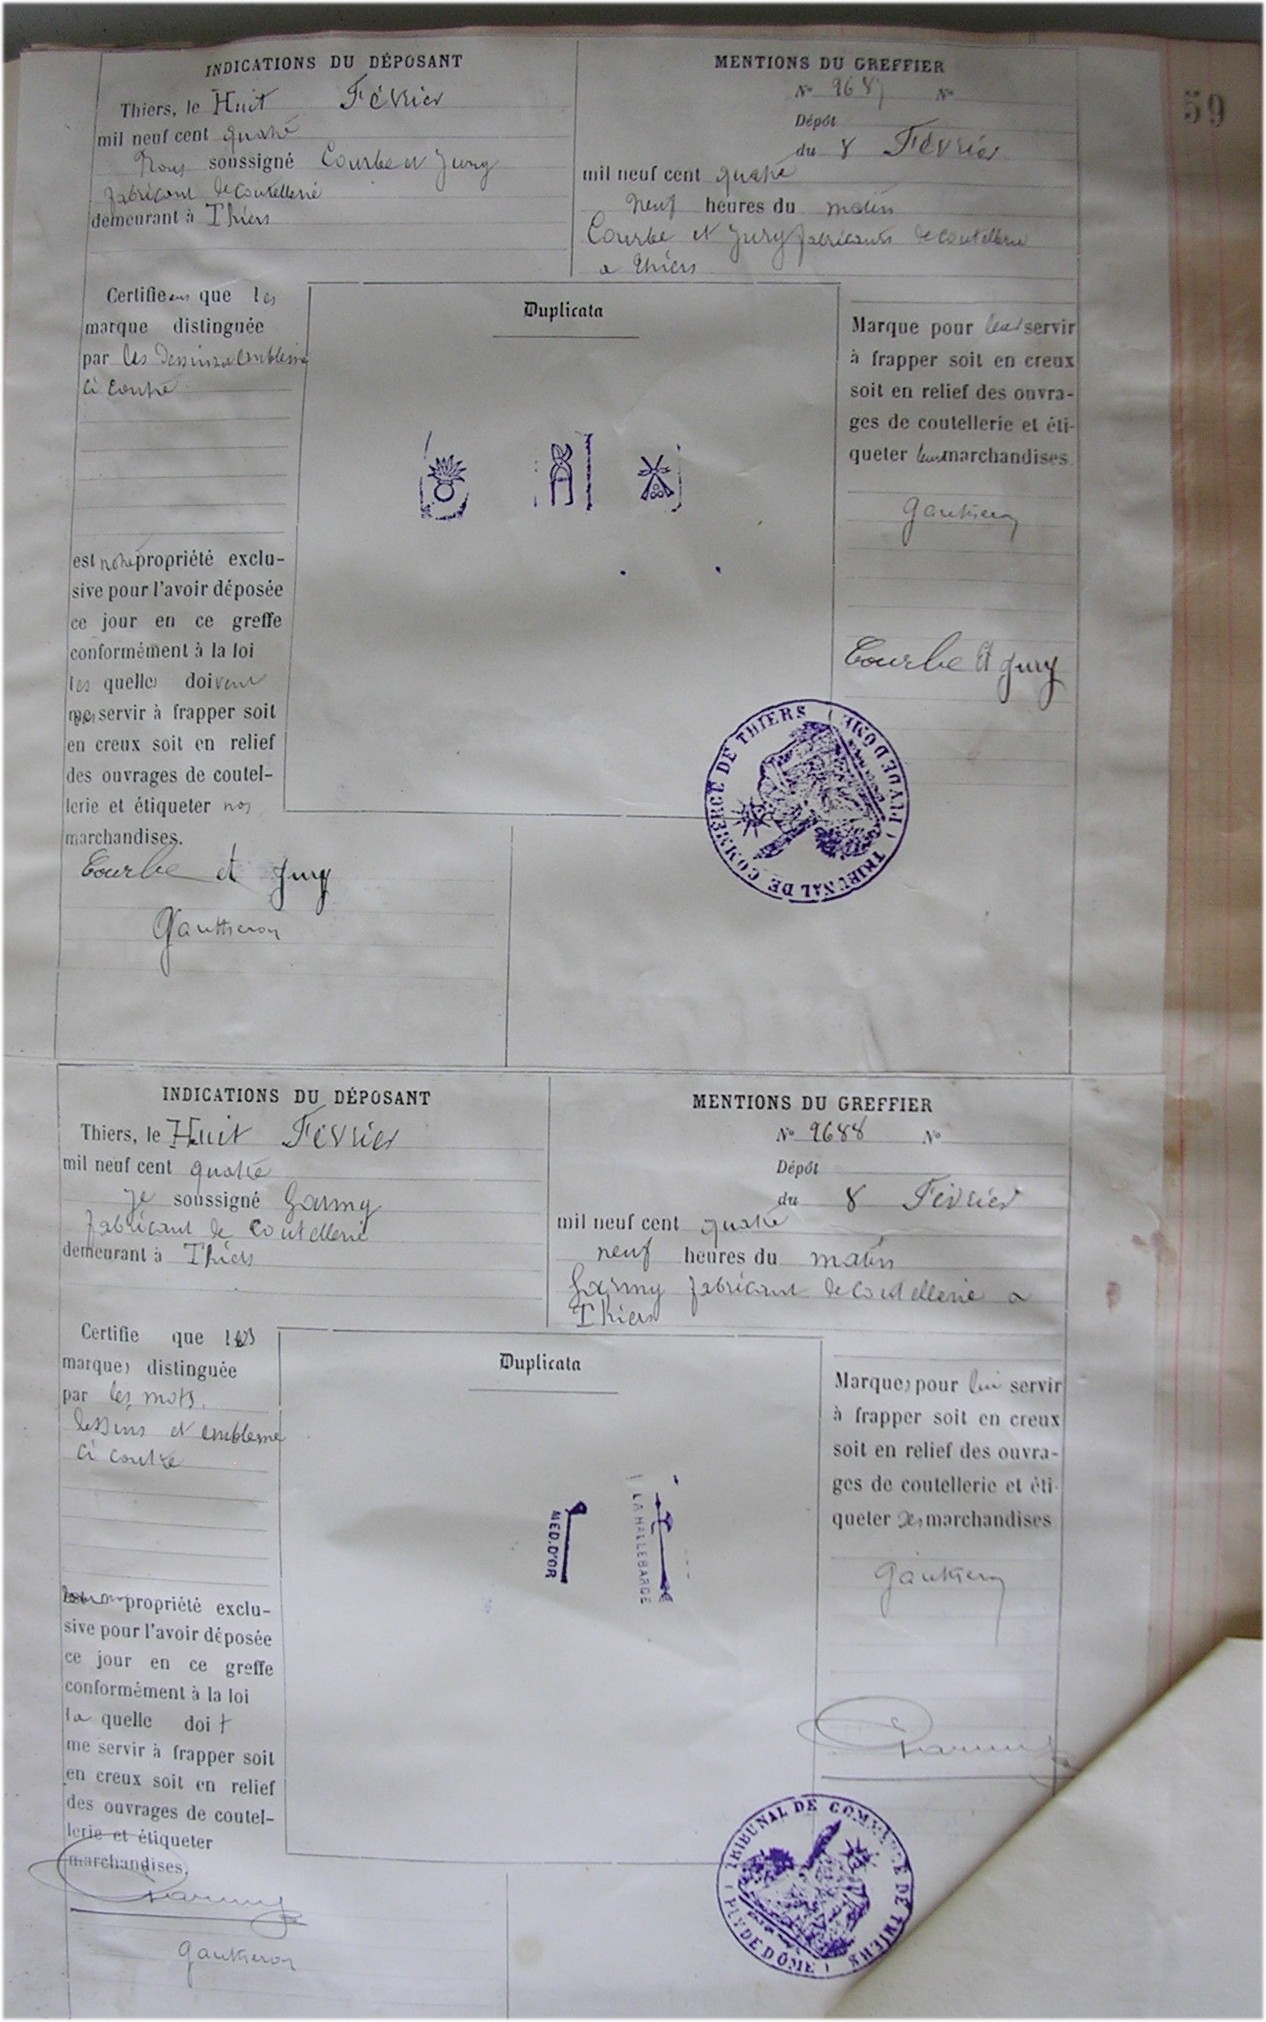 59
INDICATIONS DU DÉPOSANT
Thiers, le Huit Février
mil neuf cent quatre
Nous soussigné Courbe et Jury
fabricant de coutellerie
demeurant à Thiers
MENTIONS DU GREFFIER
N° 9687 N°
Dépôt
du 8 Février
mil neuf cent quatre
Neuf heures du matin
Courbe et Jury fabricants de coutellerie
a Thiers
Certifie que les
marque distinguée
par les dessins emblème
ci contre
est notre propriété exclu-
sive pour l'avoir déposée
ce jour en ce greffe
conformément à la loi
les quelles doivent
servir à frapper soit
en creux soit en relief
des ouvrages de coutel-
lerie et étiqueter nos
marchandises.
Courbe et Jury
Gauttieron
Duplicata
Marque pour leur servir
à frapper soit en creux
soit en relief des ouvra-
ges de coutellerie et éti-
queter leurs marchandises
Courbe et Jury
TRIBUNAL DE COMMERCE DE THIERS (PUY DE DOME)
INDICATIONS DU DÉPOSANT
Thiers, le Huit Février
mil neuf cent quatre
je soussigné Garmy
fabricant de coutellerie
demeurant à Thiers
MENTIONS DU GREFFIER
N° 9688 N°
Dépôt
du 8 Février
mil neuf cent quatre
neuf heures du matin
Garmy fabricant de coutellerie a
Thiers
Certifie que les
marques distinguée
par les mots,
dessins et emblème
ci contre
propriété exclu-
sive pour l'avoir déposée
ce jour en ce greffe
conformément à la loi
la quelle doit
me servir à frapper soit
en creux soit en relief
des ouvrages de coutel-
lerie et étiqueter
marchandises.
Gauttieron
Duplicata
MED. D'OR
LA HALLEBARDE
Marques pour lui servir
à frapper soit en creux
soit en relief des ouvra-
ges de coutellerie et éti-
queter ses marchandises
TRIBUNAL DE COMMERCE DE THIERS (PUY DE DÔME)